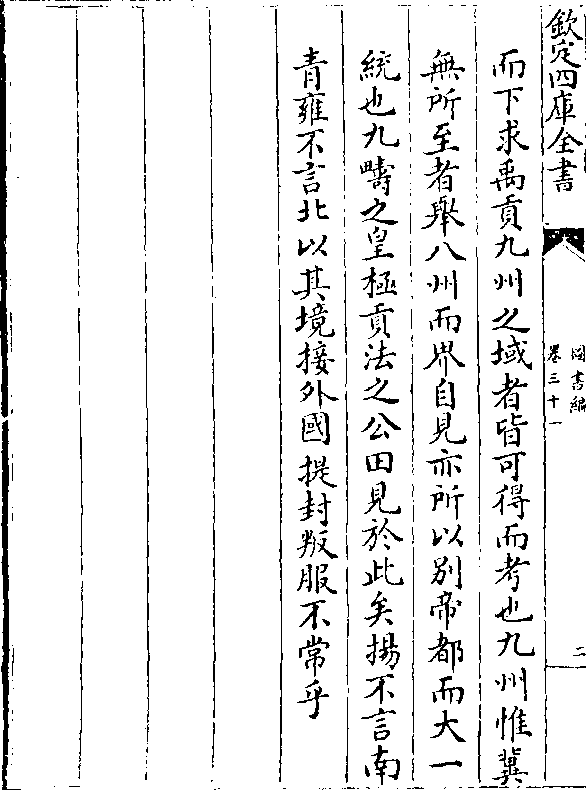 欽定四庫全書
圖書編
卷三十一
二
而下求禹貢九州之域者皆可得而考也九州惟冀
無所至者舉八州而界自見亦所以别帝都而大一
統也九疇之皇極貢法之公田見於此矣揚不言南
青雍不言北以其境接外國提封叛服不常乎